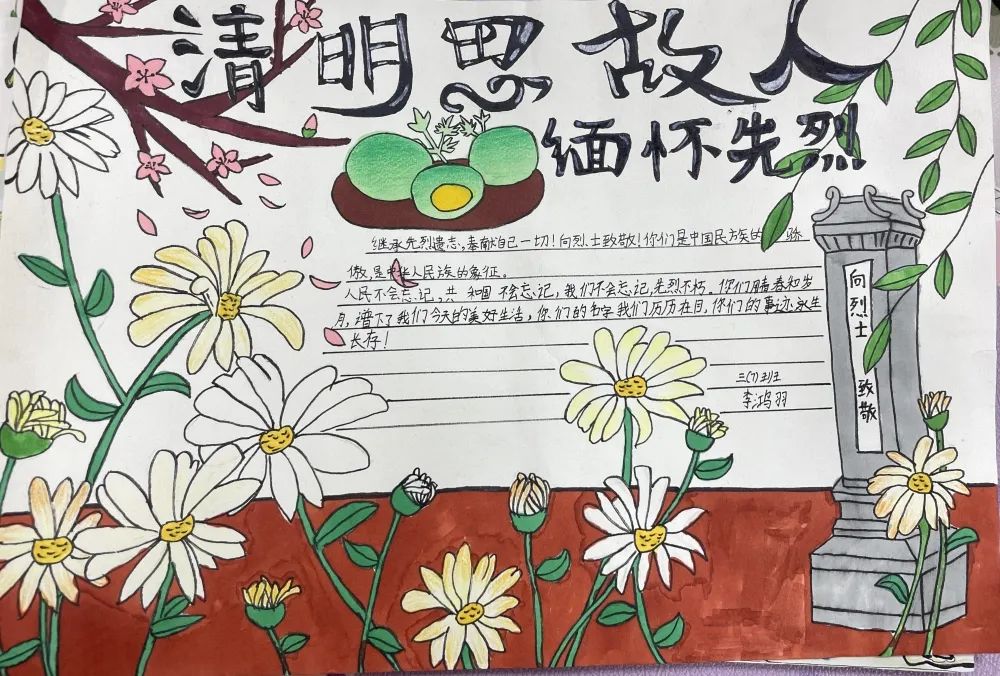 清明思故人
缅怀先烈
继承先烈遗志,奉献自己一切!向烈士致敬!你们是中国民族的 骄
傲,是中华人民族的象征。
人民不会忘记,共和国不会忘记,我们不会忘记,先烈不朽。你们用青春和岁
月,谱下了我们今天的美好生活,你们的名字我们历历在目,你们的事迹永生
长存!
三(7)班
李鸿羽
向烈士
致敬